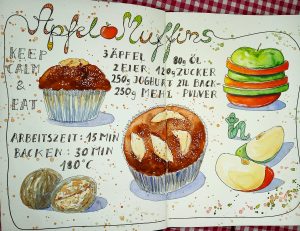 Apfel Muffins
KEEP
CALM
&
EAT
3 ÄPFEL 80g ÖL
2 EIER, 120g ZUCKER
250g JOGHURT 2TL BACK-
250g MEHL PULVER
ARBEITSZEIT: 15 MIN
BACKEN: 30 MIN
180°C